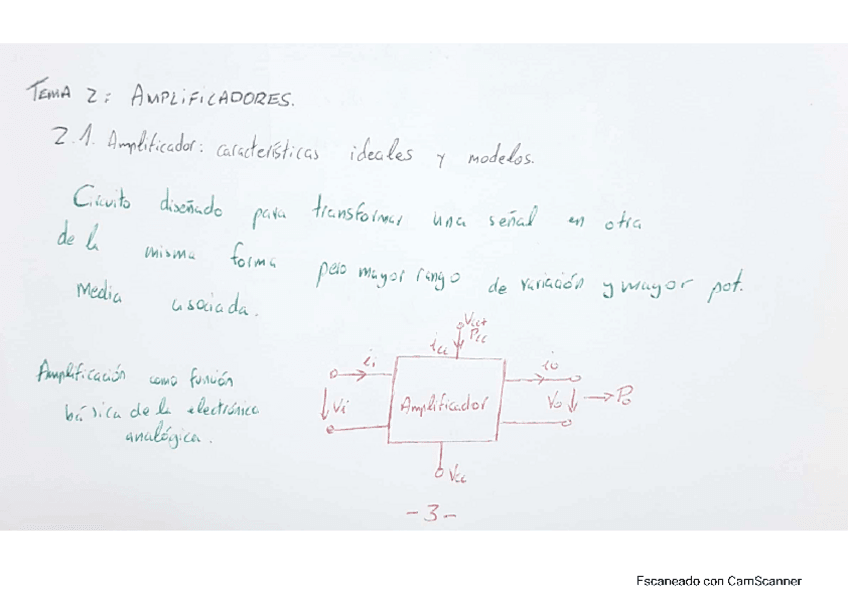 TEMA 2: AMPLIFICADORES.
2.1. Amplificador: características ideales y modelos.
Circuito diseñado para transformar una señal en otra
de la misma forma pero mayor rango de variación y mayor pot.
media asociada.
Amplificación como función
básica de la electrónica
analógica.
Vcc+
Pcc
icc
ii
io
Vi
Amplificador
Vo
Po
Vcc
-3-
Escaneado con CamScanner